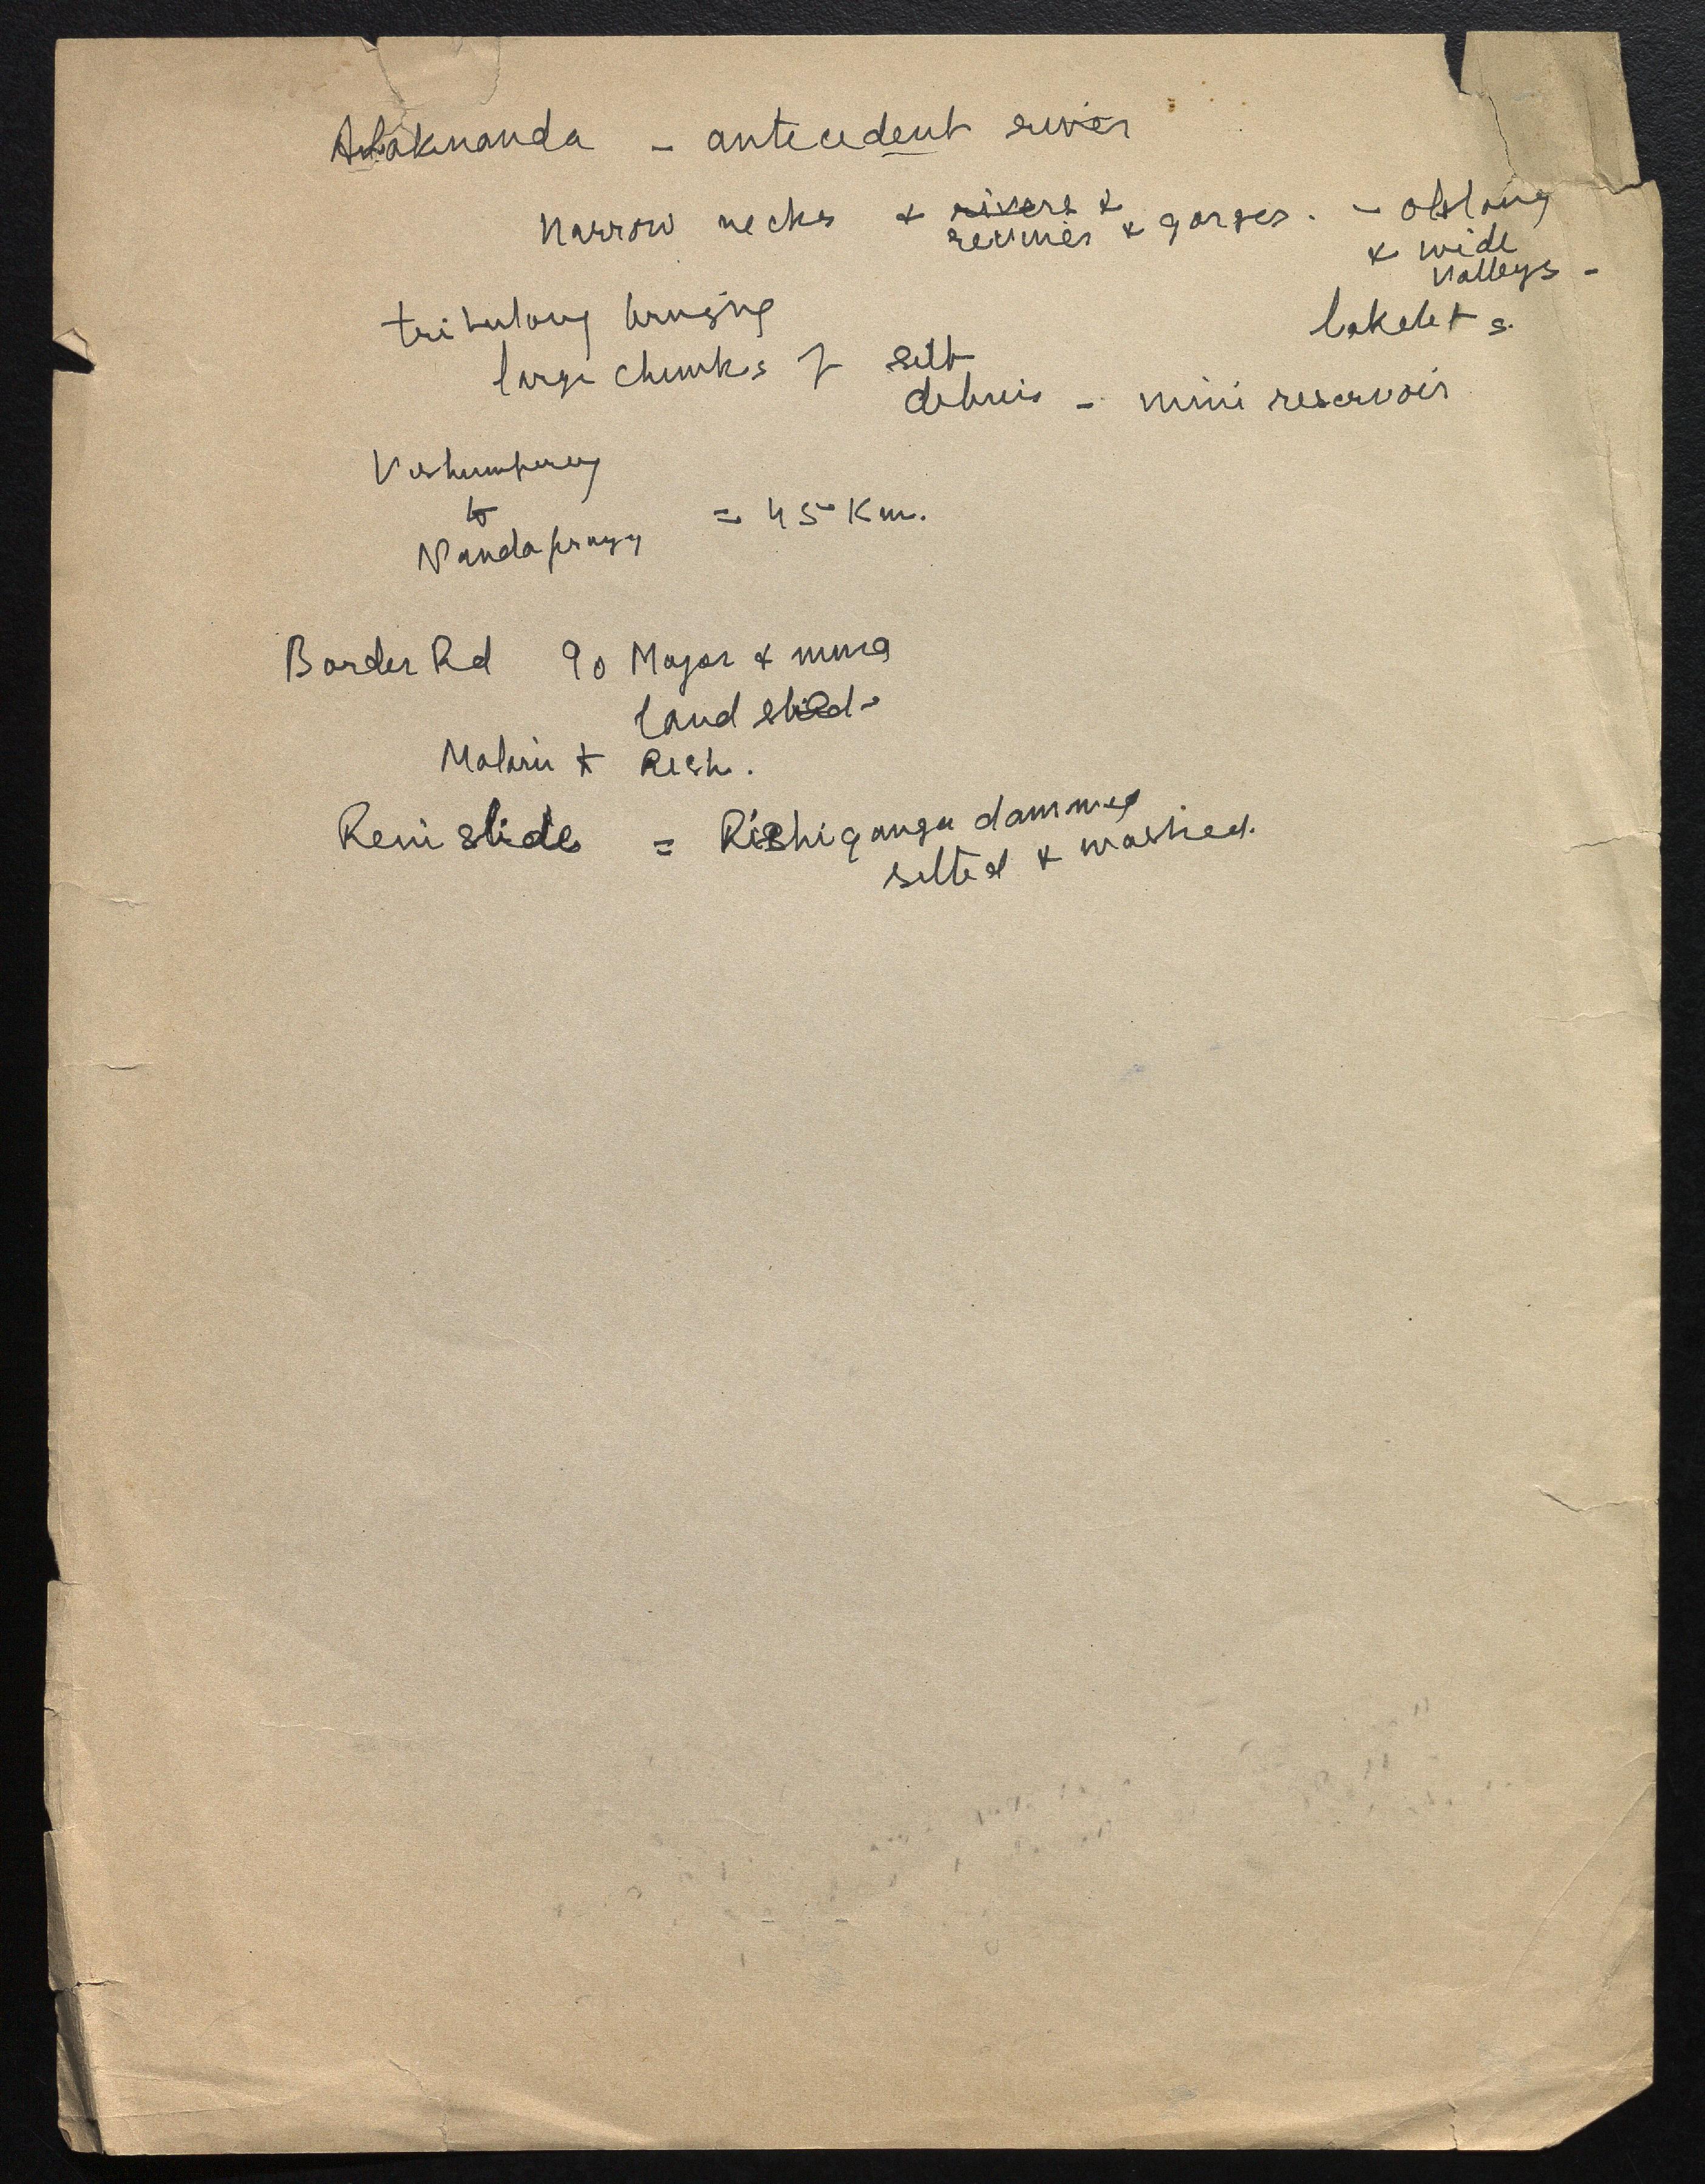 Alaknanda - antecedent river
Narrow necks & rivers & ravines & gorges. - oblong
& wide
valleys -
lakelets.
tributary bringing
large chunks of silt
debris - mini reservoir
Vishnuprayag
to
Nandaprayag = 45 Km.
Border Rd 90 Major & minor
land slid
Malari & Rish.
Reni slide = Rishiganga dammed
silted & washed.